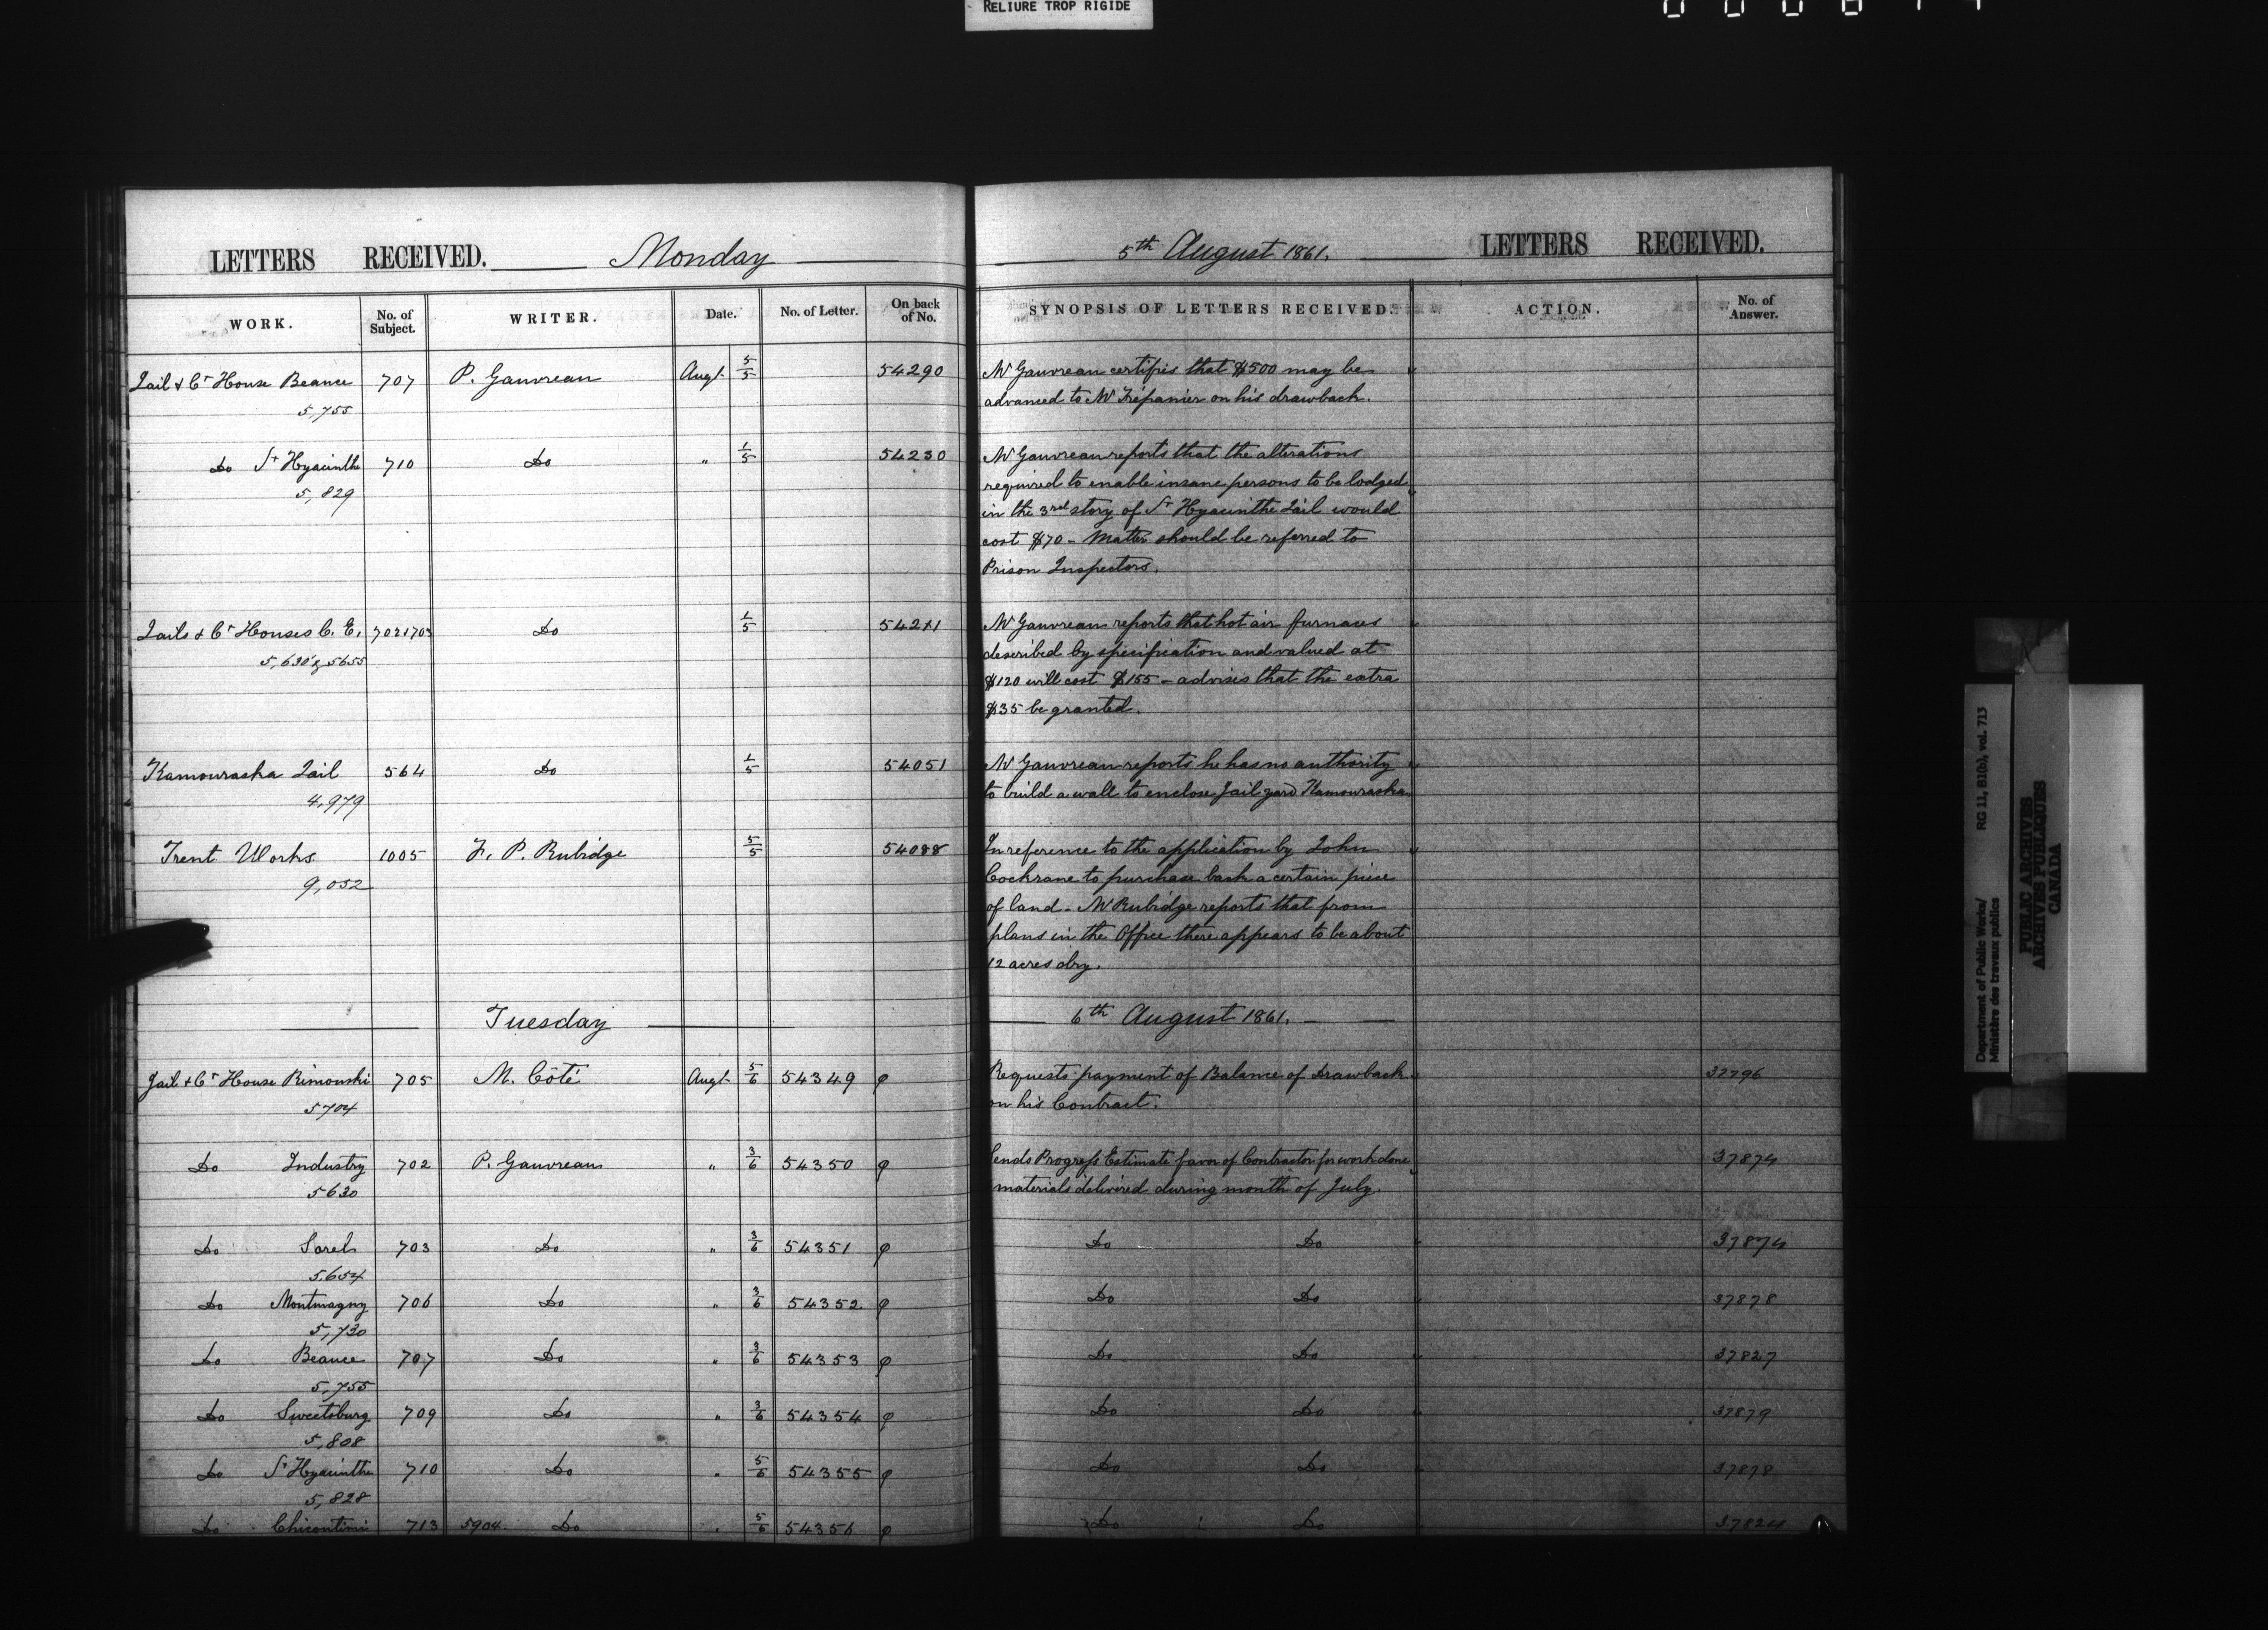 RELIURE TROP RIGIDE
LETTERS RECEIVED. Monday
5th August 1861. LETTERS RECEIVED.
WORK. No. of Subject. WRITER. Date. No. of Letter. On back of No. SYNOPSIS OF LETTERS RECEIVED. ACTION. No. of Answer.
Jail & Ct House Beauce 707 P. Gauvreau Augt 5/5 54290 Mr Gauvreau certifies that $500 may be
5,755 advanced to Mr Trépanier on his drawback.
Do St Hyacinthe 710 Do " 1/5 54230 Mr Gauvreau reports that the alterations
5,829 required to enable insane persons to be lodged
in the 3rd story of St Hyacinthe Jail would
cost $70 - Matter should be referred to
Prison Inspectors.
Jails & Ct Houses C. E. 702 & 703 Do 1/5 Mr Gauvreau reports that hot air furnaces
5,630 & 5655 described by specification and valued at
$120 will cost $155 - advises that the extra
$35 be granted.
Kamouraska Jail 564 Do 1/5 54051 Mr Gauvreau reports he has no authority
4,979 to build a wall to enclose Jail yard Kamouraska
Trent Works 1005 F. P. Rubidge 5/5 54088 In reference to the application by John
9,052 Cochrane to purchase back a certain piece
of land - Mr Rubidge reports that from
plans in the Office there appears to be about
12 acres dry.
Tuesday 6th August 1861.
Jail & Ct House Rimouski 705 M. Côté Augt 5/6 54349 φ Requests payment of Balance of Drawback 37796
5704 on his Contract.
Do Industry 702 P. Gauvreau " 3/6 54350 φ Sends Progress Estimate favor of Contractor for work done 37874
5630 materials delivered during month of July.
Do Sorel 703 Do " 3/6 54351 φ Do Do 37874
5,654
Do Montmagny 706 Do " 3/6 54352 φ Do Do 37878
5,730
Do Beauce 707 Do " 3/6 54353 φ Do Do 37827
5,755
Do Sweetsburg 709 Do " 3/6 54354 φ Do Do 37879
5,808
Do St Hyacinthe 710 Do " 5/6 54355 φ Do Do 37878
5,828
Do Chicoutimi 713 5904 Do " 5/6 54356 φ Do Do 37824
Department of Public Works/ RG 11, B1(b), vol. 713
Ministère des travaux publics
PUBLIC ARCHIVES
ARCHIVES PUBLIQUES
CANADA